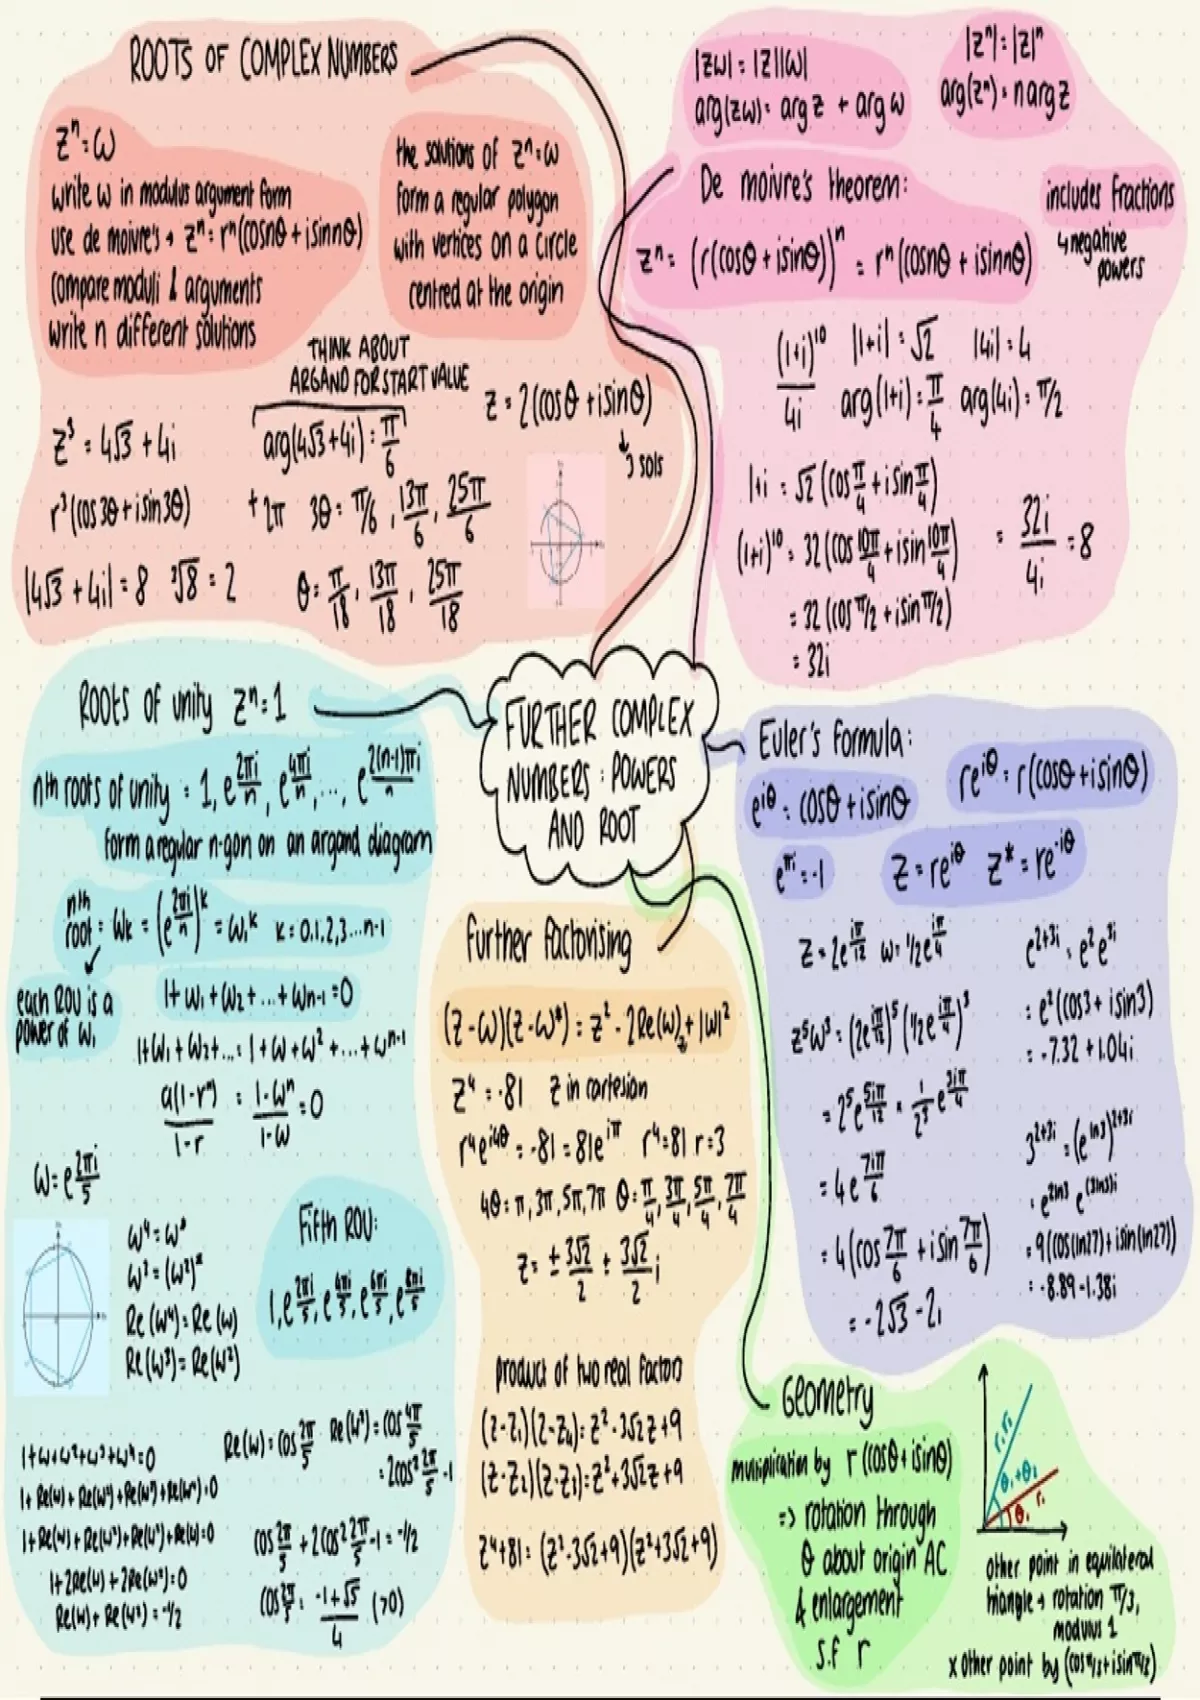 ROOTS OF COMPLEX NUMBERS
zⁿ = ω
write ω in modulus argument form
use de moivre's → zⁿ = rⁿ(cosnθ + isinnθ)
compare moduli & arguments
write n different solutions
the solutions of zⁿ = ω
form a regular polygon
with vertices on a circle
centred at the origin
THINK ABOUT
ARGAND FOR START VALUE
z³ = 4√3 + 4i
arg(4√3 + 4i) = π/6
z = 2(cosθ + isinθ)
↓ 3 sols
r³(cos3θ + isin3θ)
+2π 3θ = π/6, 13π/6, 25π/6
|4√3 + 4i| = 8 ³√8 = 2
θ = π/18, 13π/18, 25π/18
|zω| = |z||ω|
arg(zω) = arg z + arg ω
|zⁿ| = |z|ⁿ
arg(zⁿ) = n arg z
De moivre's theorem:
includes fractions
& negative
powers
zⁿ = (r(cosθ + isinθ))ⁿ = rⁿ(cosnθ + isinnθ)
(1+i)¹⁰/4i
|1+i| = √2 |4i| = 4
arg(1+i) = π/4 arg(4i) = π/2
1+i = √2(cos π/4 + isin π/4)
(1+i)¹⁰ = 32(cos 10π/4 + isin 10π/4)
= 32(cos π/2 + isin π/2)
= 32i
= 32i/4i = 8
Roots of unity zⁿ = 1
nth roots of unity = 1, e^(2πi/n), e^(4πi/n), ..., e^(2(n-1)πi/n)
form a regular n-gon on an argand diagram
nth root = ωₖ = (e^(2πi/n))^k = ω₁^k k = 0,1,2,3...n-1
each ROU is a
power of ω₁
1 + ω₁ + ω₂ + ... + ωₙ₋₁ = 0
1 + ω₁ + ω₂ + ... = 1 + ω + ω² + ... + ωⁿ⁻¹
a(1-rⁿ)/1-r = 1-ωⁿ/1-ω = 0
ω = e^(2πi/5)
ω⁴ = ω*
ω³ = (ω²)*
Re(ω⁴) = Re(ω)
Re(ω³) = Re(ω²)
Fifth ROU:
1, e^(2πi/5), e^(4πi/5), e^(6πi/5), e^(8πi/5)
1 + ω + ω² + ω³ + ω⁴ = 0
1 + Re(ω) + Re(ω²) + Re(ω³) + Re(ω⁴) = 0
1 + Re(ω) + Re(ω²) + Re(ω²) + Re(ω) = 0
1 + 2Re(ω) + 2Re(ω²) = 0
Re(ω) + Re(ω²) = -1/2
Re(ω) = cos 2π/5 Re(ω²) = cos 4π/5
= 2cos² 2π/5 - 1
cos 2π/5 + 2cos² 2π/5 - 1 = -1/2
cos 2π/5 = -1+√5/4 (>0)
FURTHER COMPLEX
NUMBERS: POWERS
AND ROOT
further factorising
(z-ω)(z-ω*) = z² - 2Re(ω)z + |ω|²
z⁴ = -81 z in cartesian
r⁴e^(i4θ) = -81 = 81e^(iπ) r⁴ = 81 r = 3
4θ = π, 3π, 5π, 7π θ = π/4, 3π/4, 5π/4, 7π/4
z = ± 3√2/2 ± 3√2/2 i
product of two real factors
(z-z₁)(z-z₄) = z² - 3√2z + 9
(z-z₂)(z-z₃) = z² + 3√2z + 9
z⁴+81 = (z²-3√2z+9)(z²+3√2z+9)
Euler's formula:
e^(iθ) = cosθ + isinθ
re^(iθ) = r(cosθ + isinθ)
e^(πi) = -1
z = re^(iθ) z* = re^(-iθ)
z = 2e^(iπ/12) ω = 1/2e^(iπ/4)
z⁵ω³ = (2e^(iπ/12))⁵(1/2e^(iπ/4))³
= 2⁵e^(5iπ/12) × 1/2³ e^(3iπ/4)
= 4e^(7iπ/6)
= 4(cos 7π/6 + isin 7π/6)
= -2√3 - 2i
e^(2+3i) = e²e^(3i)
= e²(cos3 + isin3)
= -7.32 + 1.04i
3^(2+3i) = (e^(ln3))^(2+3i)
= e^(2ln3) e^((3ln3)i)
= 9(cos(ln27) + isin(ln27))
= -8.89 - 1.38i
Geometry
multiplication by r(cosθ + isinθ)
=> rotation through
θ about origin AC
& enlargement
s.f r
r₁r₂
θ₁+θ₂
θ₁ r₁
other point in equilateral
triangle → rotation π/3,
modulus 1
x other point by (cos π/3 + isin π/3)